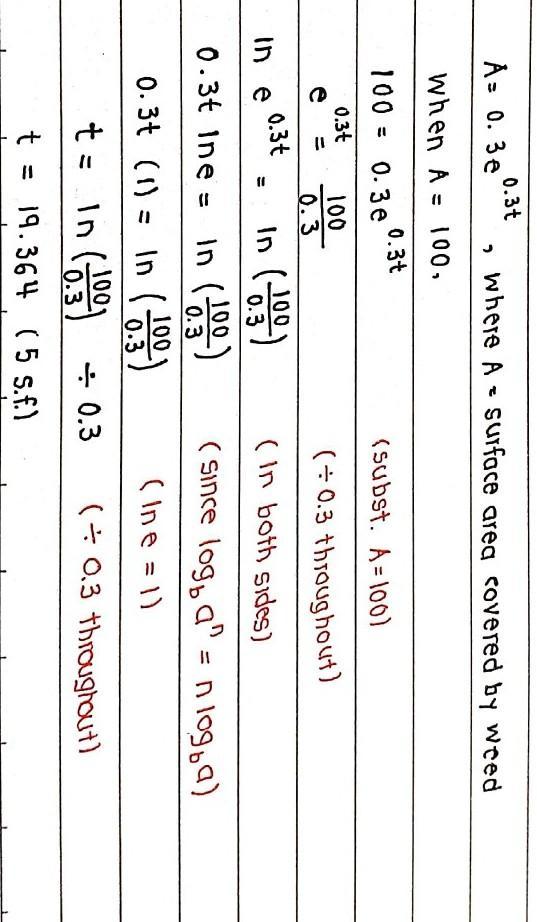 A = 0.3e^0.3t , where A = surface area covered by weed
When A = 100,
100 = 0.3e^0.3t (subst. A = 100)
e^0.3t = 100/0.3 (÷ 0.3 throughout)
ln e^0.3t = ln (100/0.3) (ln both sides)
0.3t lne = ln (100/0.3) (since log_b a^n = n log_b a)
0.3t (1) = ln (100/0.3) (lne = 1)
t = ln (100/0.3) ÷ 0.3 (÷ 0.3 throughout)
t = 19.364 (5 s.f.)